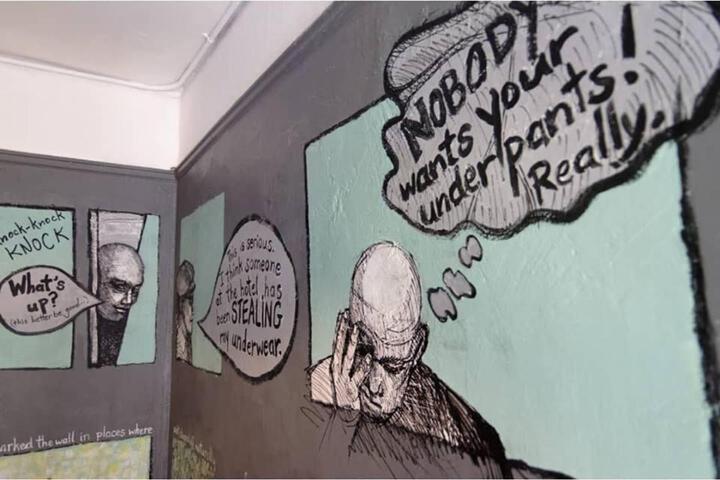 nock-knock
KNOCK
What's
up?
(this better be good...)
This is serious.
I think someone
at the hotel has
been STEALING
my underwear.
NOBODY
wants your
underpants!
Really.
arked the wall in places where